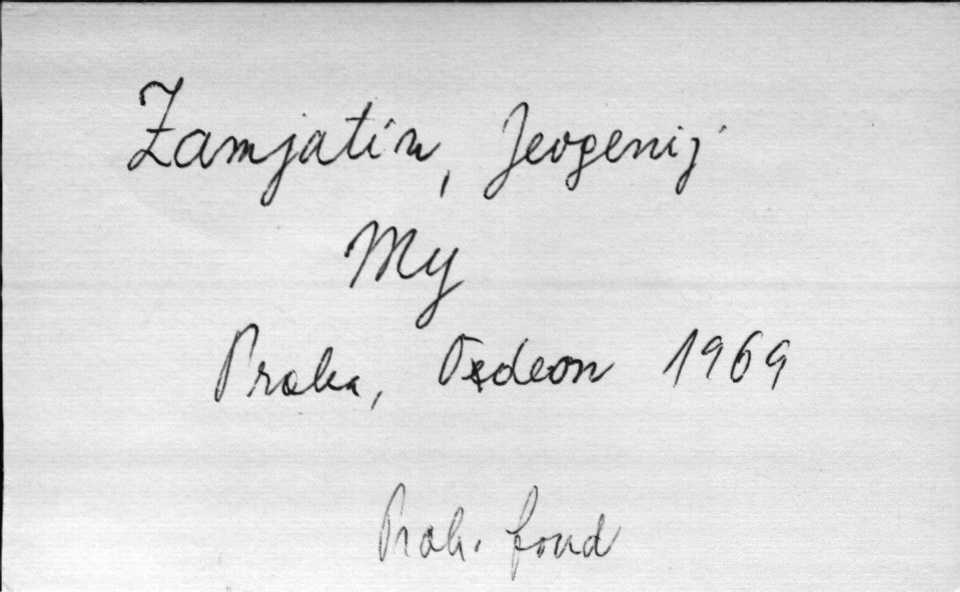 Zamjatin, Jevgenij
My
Praha, Odeon 1969
Proh. fond